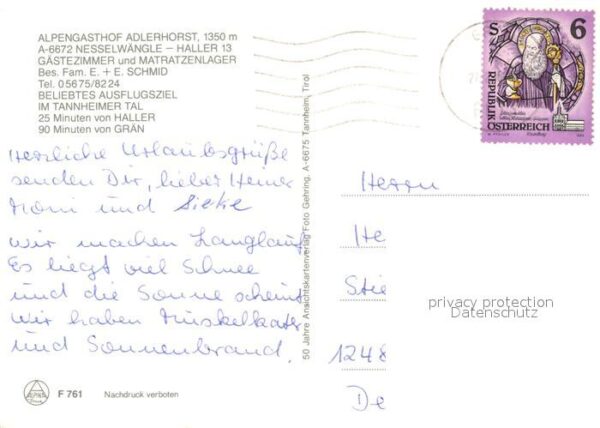 ALPENGASTHOF ADLERHORST, 1350 m
A-6672 NESSELWÄNGLE – HALLER 13
GÄSTEZIMMER und MATRATZENLAGER
Bes. Fam. E. + E. SCHMID
Tel. 05675/8224
BELIEBTES AUSFLUGSZIEL
IM TANNHEIMER TAL
25 Minuten von HALLER
90 Minuten von GRÄN
Herzliche Urlaubsgrüße
senden Dir, lieber Heiner
Moni und Sieke
Wir machen Langlauf
Es liegt viel Schnee
und die Sonne scheint
Wir haben Muskelkater
und Sonnenbrand.
F 761 Nachdruck verboten
50 Jahre Ansichtskartenverlag Foto Gehring, A-6675 Tannheim, Tirol
S 6
REPUBLIK
ÖSTERREICH
Herrn
He
Stie
1248
De
privacy protection
Datenschutz